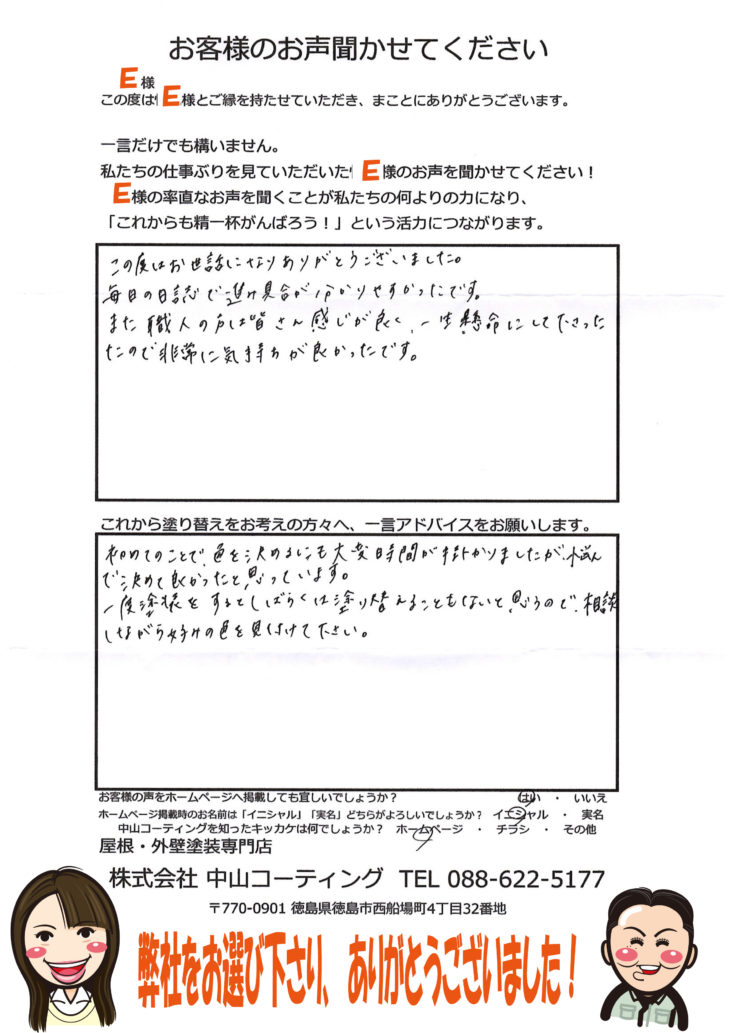 お客様のお声聞かせてください
E様
この度は E様とご縁を持たせていただき、まことにありがとうございます。
一言だけでも構いません。
私たちの仕事ぶりを見ていただいた E様のお声を聞かせてください！
E様の率直なお声を聞くことが私たちの何よりの力になり、
「これからも精一杯がんばろう！」という活力につながります。
この度はお世話になりありがとうございました。
毎日の日誌で進み具合が分かりやすかったです。
また職人の方は皆さん感じが良く、一生懸命にして下さった
たので非常に気持ちが良かったです。
これから塗り替えをお考えの方々へ、一言アドバイスをお願いします。
初めてのことで、色を決めるにも大変時間が掛かりましたが、悩ん
で決めて良かったと思っています。
一度塗装をするとしばらくは塗り替えることもないと思うので、相談
しながら好みの色を見付けて下さい。
お客様の声をホームページへ掲載しても宜しいでしょうか？　はい ・ いいえ
ホームページ掲載時のお名前は「イニシャル」「実名」どちらがよろしいでしょうか？　イニシャル ・ 実名
中山コーティングを知ったキッカケは何でしょうか？　ホームページ ・ チラシ ・ その他
屋根・外壁塗装専門店
株式会社 中山コーティング TEL 088-622-5177
〒770-0901 徳島県徳島市西船場町4丁目32番地
弊社をお選び下さり、ありがとうございました！